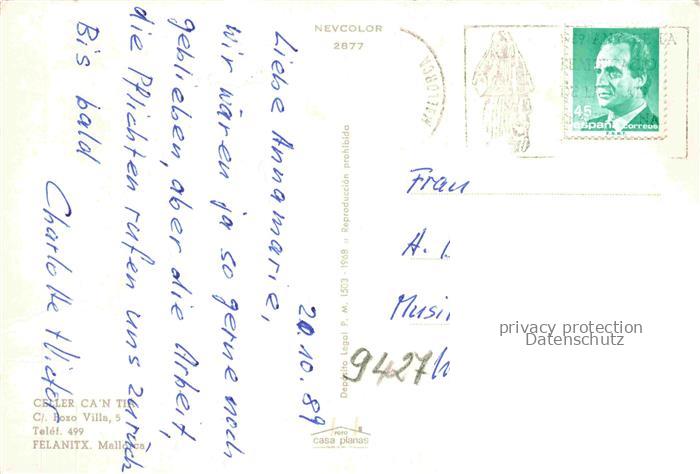 NEVCOLOR
2877
MALLORCA
45
españa
correos
20.10.89
Liebe Annamarie,
wir wären ja so gerne noch
geblieben, aber die Arbeit,
die Pflichten rufen uns zurück
Bis bald
Charlotte
Depósito Legal P. M. 1503 - 1968 :: Reproducción prohibida
Frau
A.
9427
privacy protection
Datenschutz
CELLER CA'N
C/. Pozo Villa, 5
Teléf. 499
FELANITX. Mallorca
FOTO
casa planas